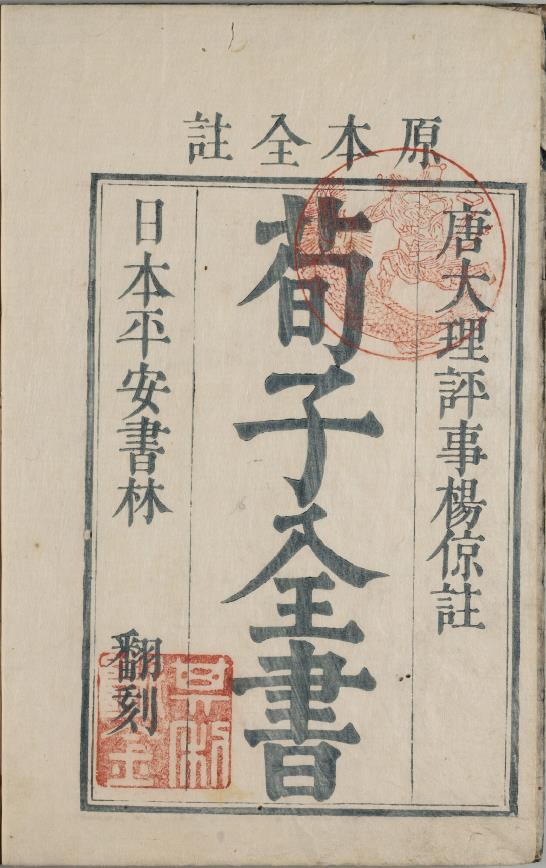 原本全註
唐大理評事楊倞註
荀子全書
日本平安書林
翻刻